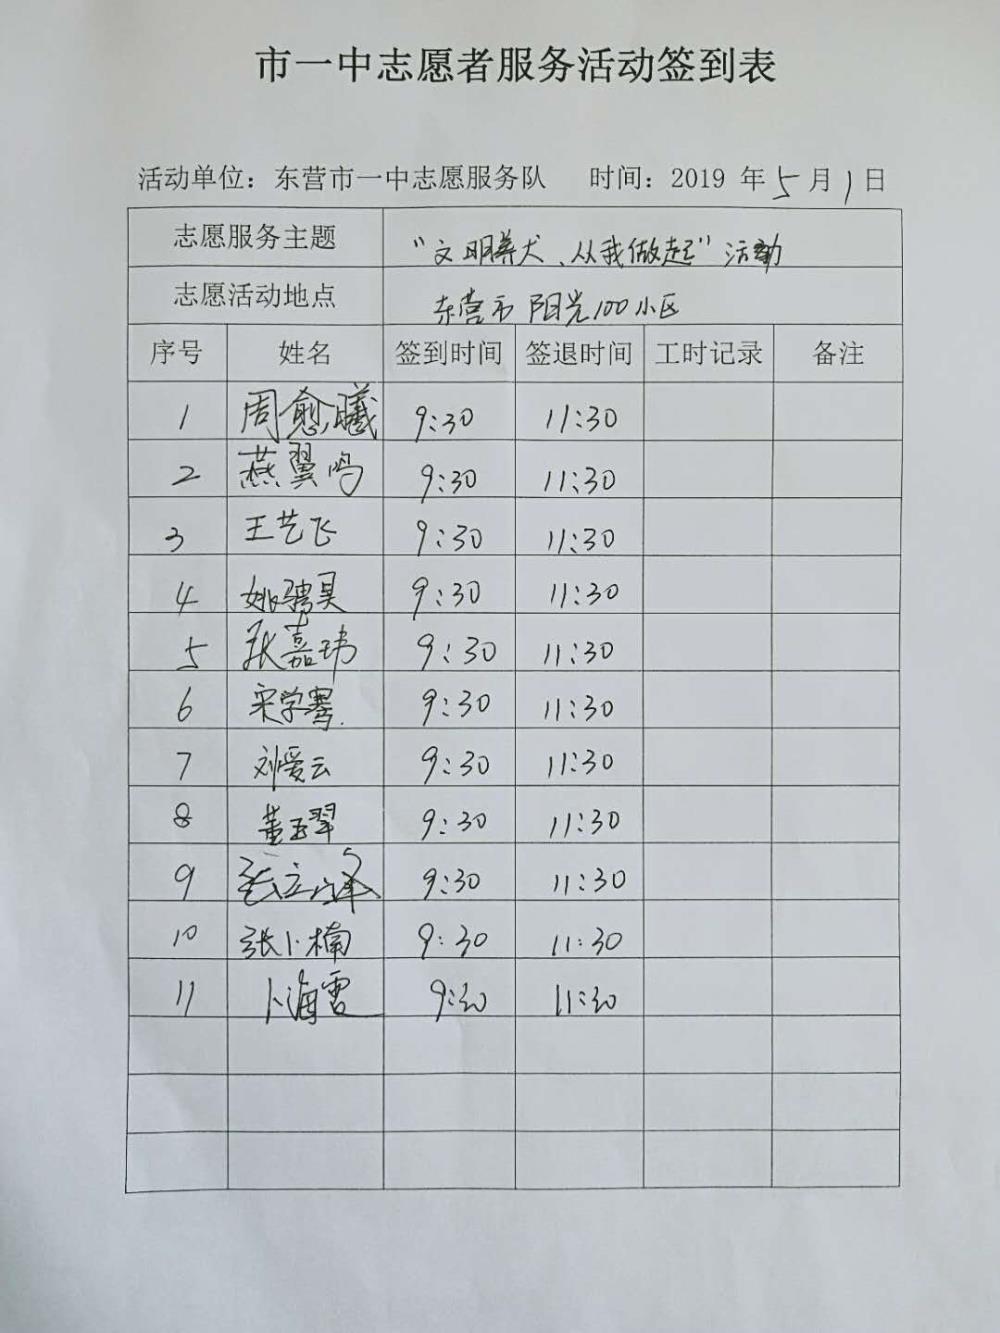 市一中志愿者服务活动签到表
活动单位：东营市一中志愿服务队 时间：2019 年 5 月 1 日
志愿服务主题 “文明养犬、从我做起”活动
志愿活动地点 东营市 阳光100小区
序号 姓名 签到时间 签退时间 工时记录 备注
1 周愈曦 9:30 11:30
2 燕翼鸣 9:30 11:30
3 王艺飞 9:30 11:30
4 姚骋昊 9:30 11:30
5 张嘉玮 9:30 11:30
6 宋学骞 9:30 11:30
7 刘爱云 9:30 11:30
8 董玉翠 9:30 11:30
9 张立峰 9:30 11:30
10 张卜楠 9:30 11:30
11 卜海雪 9:30 11:30